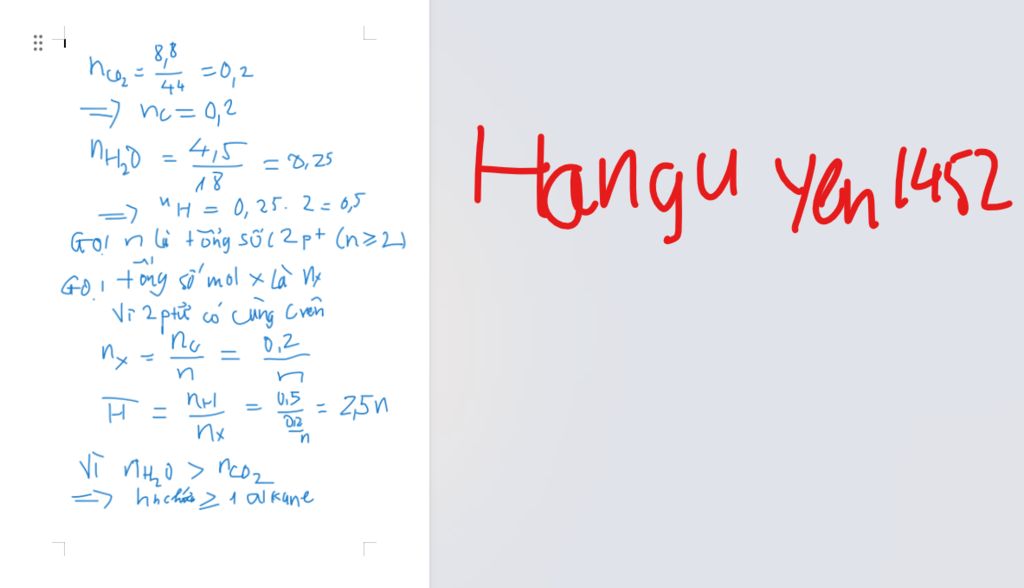 nCO₂ = 8,8/44 = 0,2
⇒ nC = 0,2
nH₂O = 4,5/18 = 0,25
⇒ nH = 0,25. 2 = 0,5
Gọi n là tổng số C 2 pt (n ≥ 2)
Gọi tổng số mol x là nx
Vì 2 ptử có cùng C nên
nx = nC/n = 0,2/n
H̅ = nH/nx = 0,5/(0,2/n) = 2,5n
Vì nH₂O > nCO₂
⇒ hh chứa ≥ 1 alkane
Hangu yen 1452